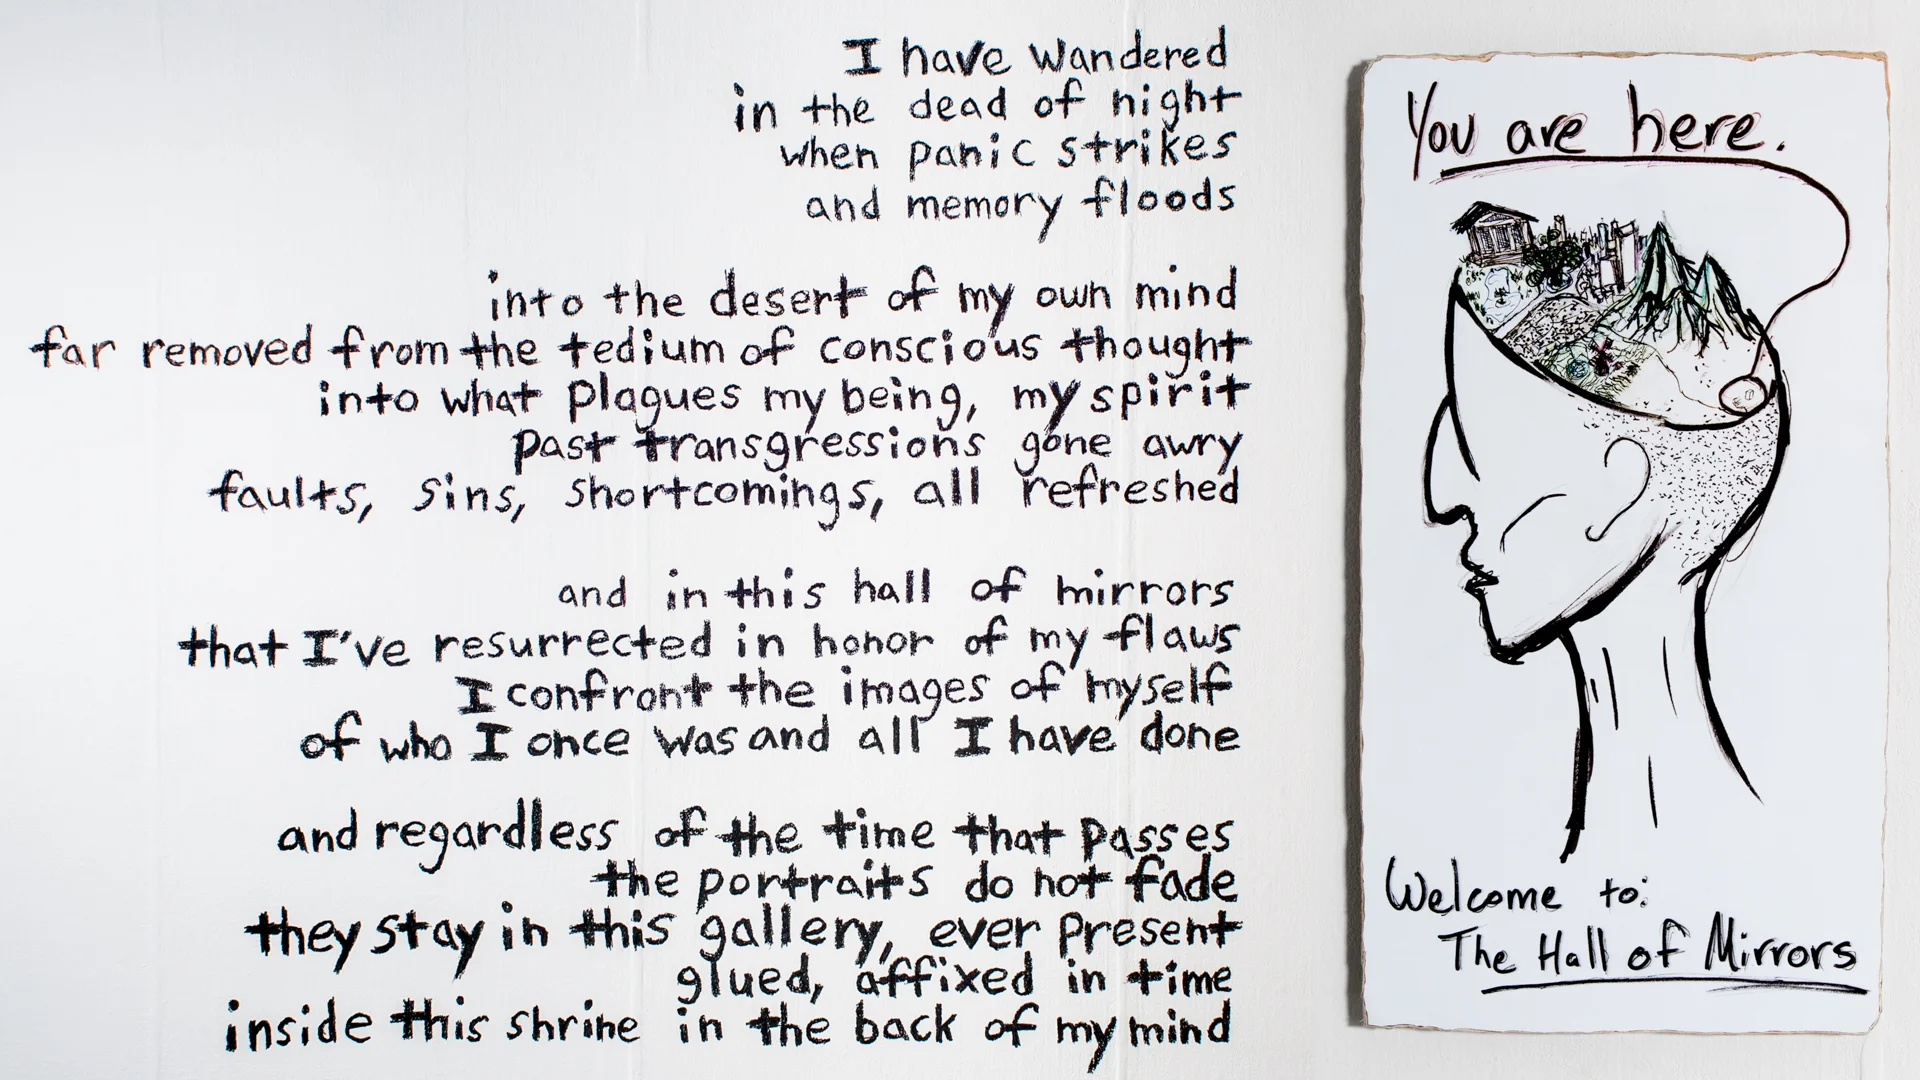 I have wandered
in the dead of night
when panic strikes
and memory floods
into the desert of my own mind
far removed from the tedium of conscious thought
into what plagues my being, my spirit
past transgressions gone awry
faults, sins, shortcomings, all refreshed
and in this hall of mirrors
that I've resurrected in honor of my flaws
I confront the images of myself
of who I once was and all I have done
and regardless of the time that passes
the portraits do not fade
they stay in this gallery, ever present
glued, affixed in time
inside this shrine in the back of my mind
You are here.
Welcome to:
The Hall of Mirrors